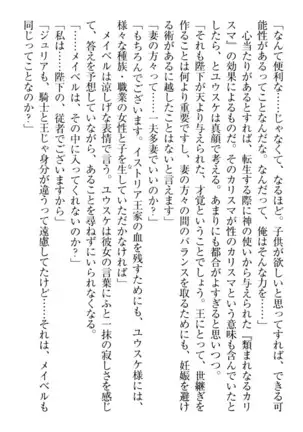 「なんて便利な……じゃなくて、なるほど。子供が欲しいと思ってすれば、できる可
能性があるってことなんだな。なんだって、俺はそんな力を……」
　心当たりがあるとすれば、転生する際に神の使いから与えられた「類まれなるカリ
スマ』の効果によるものだ。そのカリスマが性のカリスマという意味も含んでいたと
したら、とユウスケは真顔で考える。あまりにも都合がよすぎると思いつつ。
「それも陛下が天より与えられた、才覚ということでしょう。王にとって、世継ぎを
作ることは何より重要ですし、妻の方々の間のバランスを取るために、妊娠を避け
る術があるに越したことはないと言えます」
「妻の方々って……一夫多妻でいいのか？」
「もちろんでございます。イストリア王家の血を残すためにも、ユウスケ様には、
様々な種族・職業の女性と子を生していただかなければ」
　メイベルは涼しげな表情で言う。ユウスケは彼女の言葉にふと一抹の寂しさを感じ
て、答えを予想していながら、あることを尋ねずにいられなくなる。
「……メイベルは、その中に入ってくれないのか？」
「私は……陛下の、従者でございますから」
「ジュリアも、騎士と王じゃ身分が違うって遠慮してたけど……それは、メイベルも
同じってことなのか？」